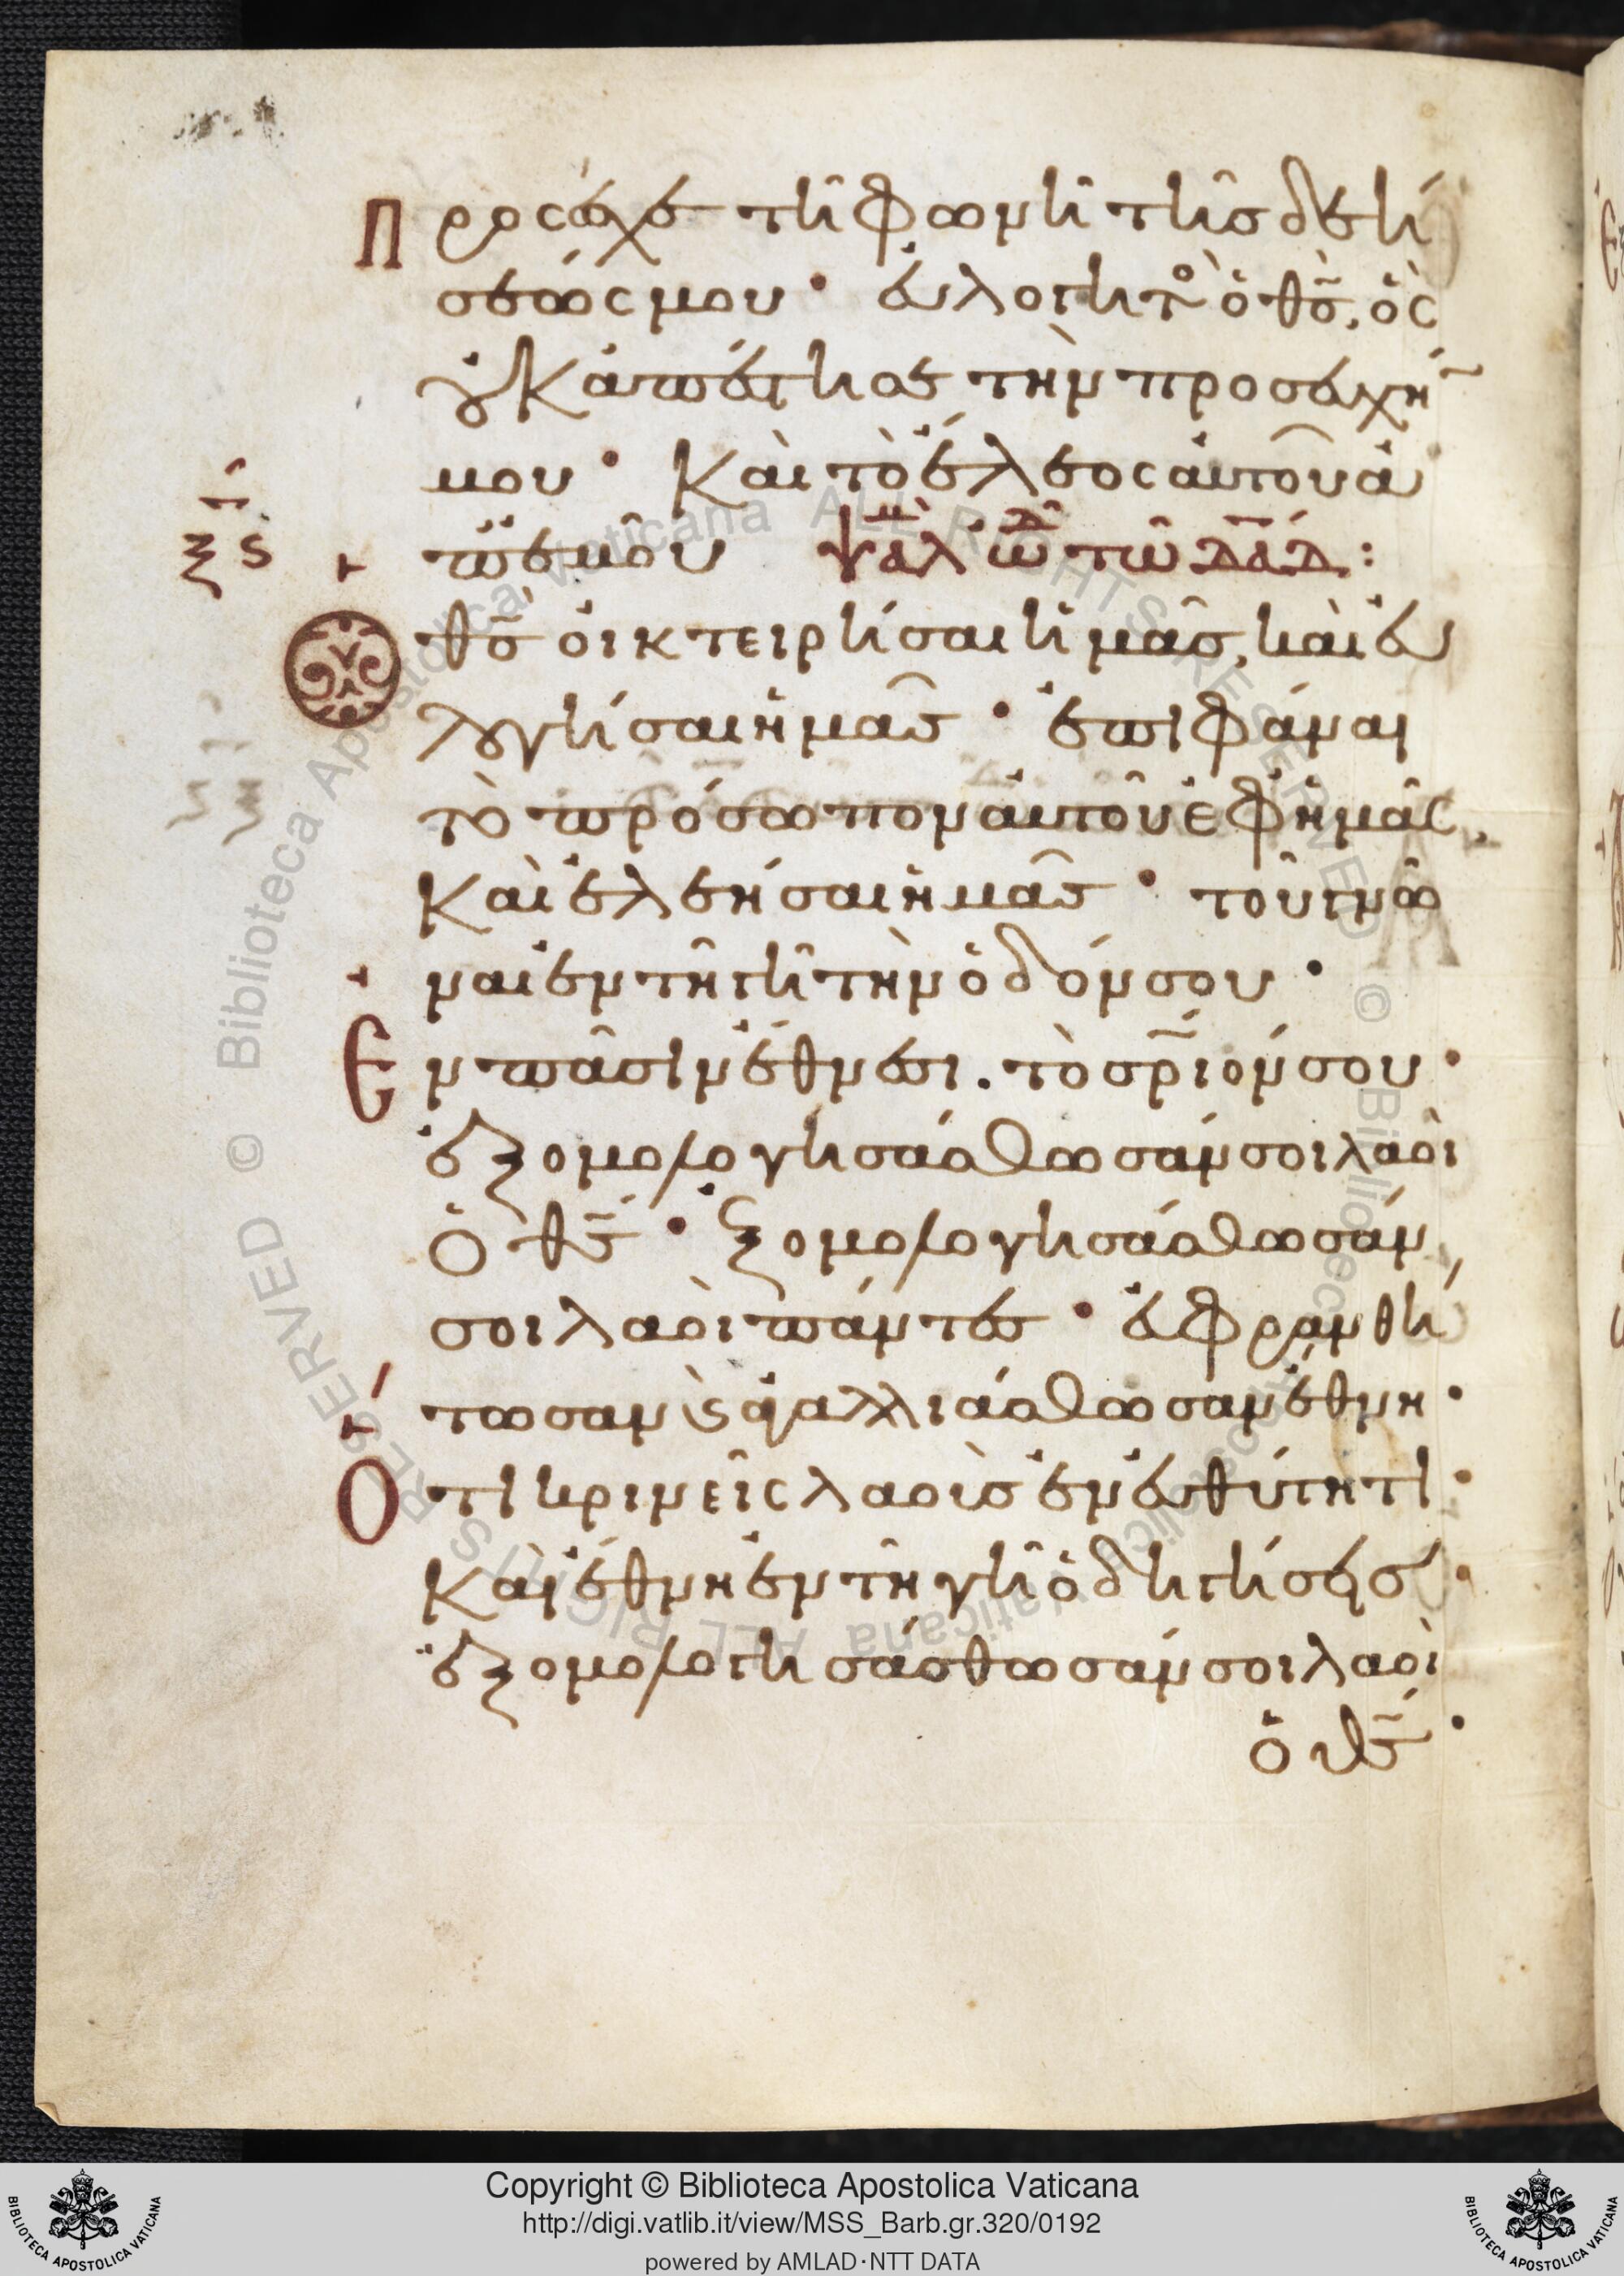 Προσέσχε τῆ φωνῆ τῆς δεή
σεώς μου· εὐλογητὸς ὁ θς, ὃς
οὐκ ἀπέστησε τὴν προσευχή
μου· Καὶ τὸ ἔλεος αὐτοῦ ἀ
π' ἐμοῦ ψαλ ὠδ τῶ δαδ:
ξς
Ὁ θς οἰκτειρήσαι ἡμᾶς, καὶ εὐ
λογήσαι ἡμᾶς· ἐπιφάναι
τὸ πρόσωπον αὐτοῦ ἐφ ἡμᾶς,
Καὶ ἐλεήσαι ἡμᾶς· τοῦ γνῶ
ναι ἐν τῆ γῆ τὴν ὁδόν σου·
Ἐν πᾶσιν ἔθνεσι. τὸ σριόν σου·
ἐξομολογησάσθωσάν σοι λαοὶ
ὁ θς· ἐξομολογησάσθωσάν
σοι λαοὶ πάντες· εὐφρανθή
τωσαν ϗ ἀγαλλιάσθωσαν ἔθνη·
Ὅτι κρινεῖς λαοὺς ἐν εὐθύτητι·
Καὶ ἔθνη ἐν τῆ γῆ ὁδηγήσεις·
ἐξομολογησάσθωσάν σοι λαοὶ
ὁ θς·
Copyright © Biblioteca Apostolica Vaticana
http://digi.vatlib.it/view/MSS_Barb.gr.320/0192
powered by AMLAD·NTT DATA
BIBLIOTECA APOSTOLICA VATICANA
BIBLIOTECA APOSTOLICA VATICANA